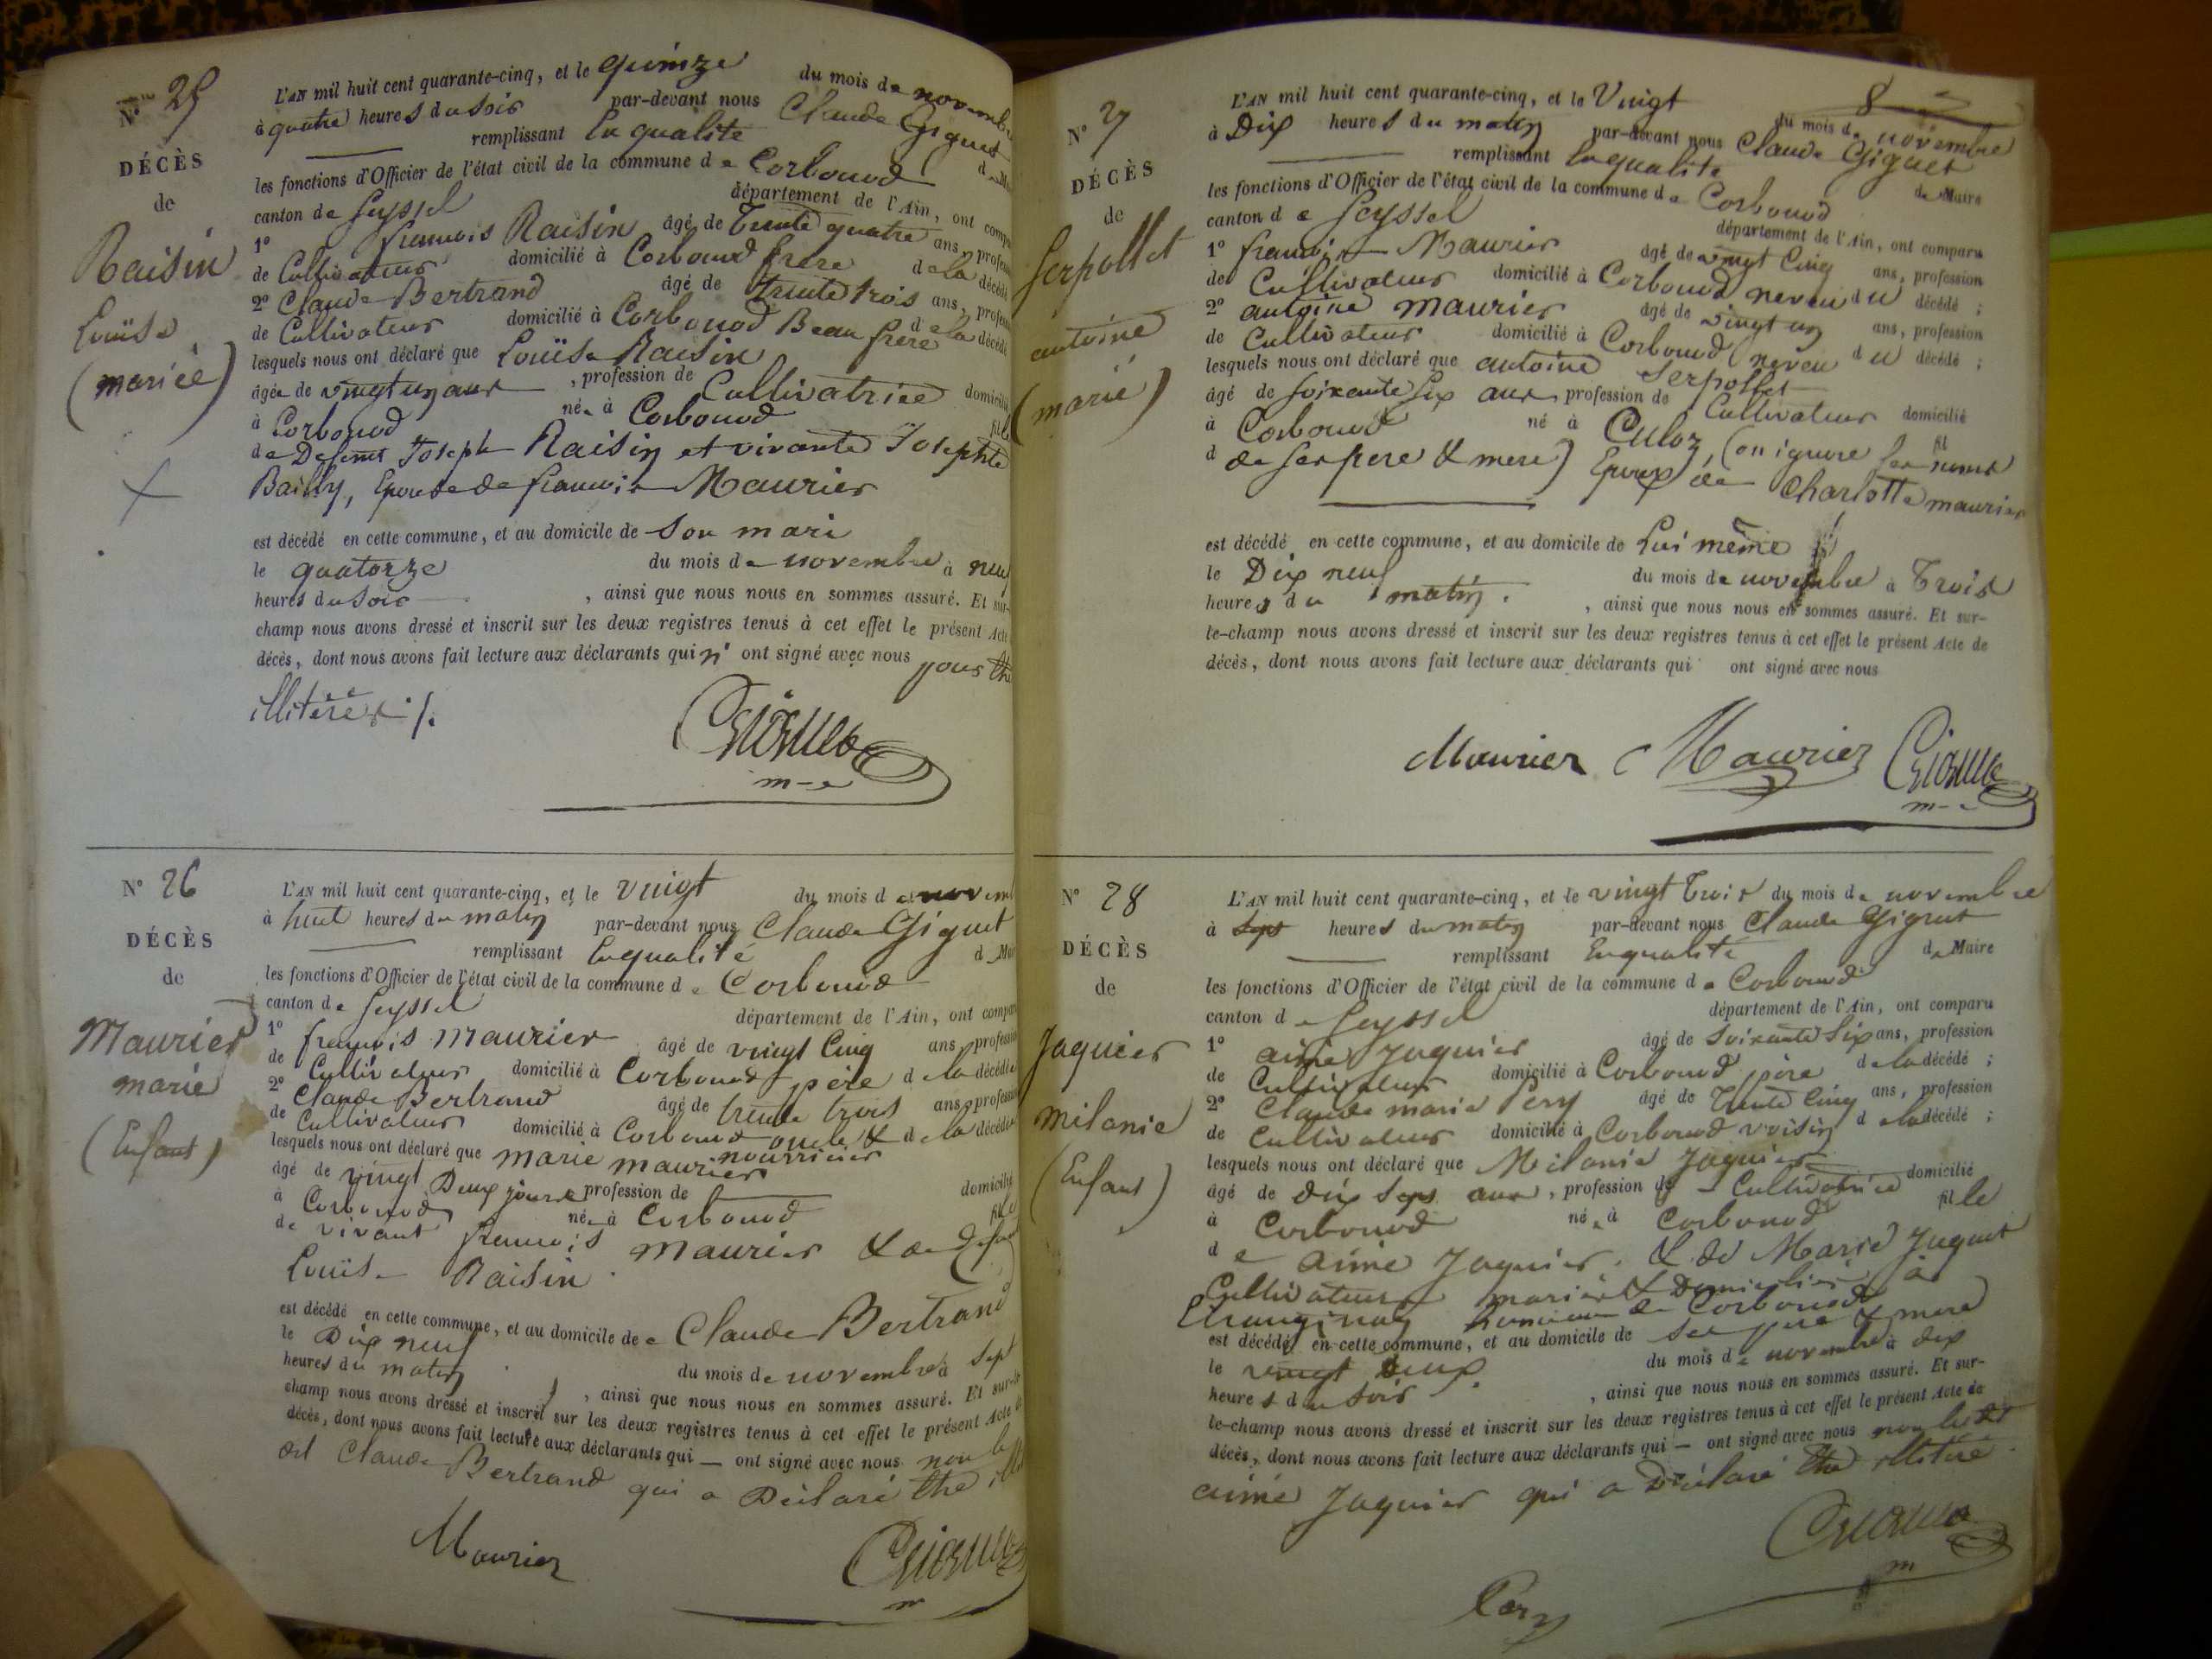 N° 25
DÉCÈS
de
Raisin
Louïse
(mariée)
L'AN mil huit cent quarante-cinq, et le quinze du mois de novembre
à quatre heures du soir par-devant nous Claude Giguet
remplissant En qualité de
les fonctions d'Officier de l'état civil de la commune de Corbonod
canton de Seyssel département de l'Ain, ont
1° francois Raisin âgé de Trente quatre ans,
de Cultivateur domicilié à Corbonod frere de la décédé
2° Claude Bertrand âgé de trente trois ans,
de Cultivateur domicilié à Corbonod Beau frere de la décédé
lesquels nous ont déclaré que Louïse Raisin
âgée de vingt un ans , profession de Cultivatrice
à Corbonod née à Corbonod
de Defunt Joseph Raisin et vivante Josephte
Bailly, Epouse de francois Maurier
est décédé en cette commune, et au domicile de Son mari
le quatorze du mois de novembre à neuf
heures du Soir , ainsi que nous nous en sommes assuré. Et sur-
champ nous avons dressé et inscrit sur les deux registres tenus à cet effet le présent Acte
décès, dont nous avons fait lecture aux déclarants qui n' ont signé avec nous pour
illitérés ./.
Giguet
N° 26
DÉCÈS
de
Maurier
marie
(Enfant)
L'AN mil huit cent quarante-cinq, et le vingt du mois de
à huit heures du matin par-devant nous Claude Giguet
remplissant En qualité
les fonctions d'Officier de l'état civil de la commune de Corbonod
canton de Seyssel département de l'Ain, ont
1° francois Maurier âgé de vingt Cinq ans,
de Cultivateur domicilié à Corbonod père de la décédée
2° Claude Bertrand âgé de trente trois ans,
de Cultivateur domicilié à Corbonod oncle & de la décédée
nourricier
lesquels nous ont déclaré que marie maurier
âgé de vingt Deux jours profession de
à Corbonod née à Corbonod
de vivant francois Maurier & de
Louïse Raisin
est décédé en cette commune, et au domicile de Claude Bertrand
le Dix neuf du mois de novembre à Sept
heures du matin , ainsi que nous nous en sommes assuré. Et
champ nous avons dressé et inscrit sur les deux registres tenus à cet effet le présent Acte
décès, dont nous avons fait lecture aux déclarants qui — ont signé avec nous non
Claude Bertrand qui a Déclaré
Maurier Giguet
8
N° 27
DÉCÈS
de
Serpollet
antoine
(marié)
L'AN mil huit cent quarante-cinq, et le Vingt du mois de novembre
à Dix heures du matin par-devant nous Claude Giguet
remplissant En qualité de Maire
les fonctions d'Officier de l'état civil de la commune de Corbonod
canton de Seyssel département de l'Ain, ont comparu
1° francois Maurier âgé de vingt Cinq ans, profession
de Cultivateur domicilié à Corbonod neveu du décédé ;
2° antoine maurier âgé de vingt un ans, profession
de Cultivateur domicilié à Corbonod neveu du décédé ;
lesquels nous ont déclaré que antoine Serpollet
âgé de Soixante Six ans, profession de Cultivateur domicilié
à Corbonod né à Culoz, (on ignore les noms fil
d de Ses pere & mere) Epoux de Charlotte maurier
est décédé en cette commune, et au domicile de Lui même
le Dix neuf du mois de novembre à Trois
heures du matin. , ainsi que nous nous en sommes assuré. Et sur-
le-champ nous avons dressé et inscrit sur les deux registres tenus à cet effet le présent Acte de
décès, dont nous avons fait lecture aux déclarants qui ont signé avec nous
Maurier Maurier Giguet
N° 28
DÉCÈS
de
Jaquier
milanie
(Enfant)
L'AN mil huit cent quarante-cinq, et le vingt Trois du mois de novembre
à Sept heures du matin par-devant nous Claude Giguet
remplissant En qualité de Maire
les fonctions d'Officier de l'état civil de la commune de Corbonod
canton de Seyssel département de l'Ain, ont comparu
1° aimé Jaquier âgé de Soixante Six ans, profession
de Cultivateur domicilié à Corbonod père de la décédé ;
2° Claude marie Pery âgé de Trente Cinq ans, profession
de Cultivateur domicilié à Corbonod voisin de la décédé ;
lesquels nous ont déclaré que Milanie Jaquier
âgé de dix Sept ans, profession de Cultivatrice domicilié
à Corbonod née à Corbonod fille
de aimé Jaquier & de Marie Juguet
Cultivateurs mariés & Domiciliés à
de Corbonod
est décédé en cette commune, et au domicile de Ses pere & mere
le vingt Deux du mois de novembre à dix
heures du Soir. , ainsi que nous nous en sommes assuré. Et sur-
le-champ nous avons dressé et inscrit sur les deux registres tenus à cet effet le présent Acte de
décès, dont nous avons fait lecture aux déclarants qui — ont signé avec nous non ledit
aimé Jaquier qui a Déclaré être illitéré
Giguet
Pery